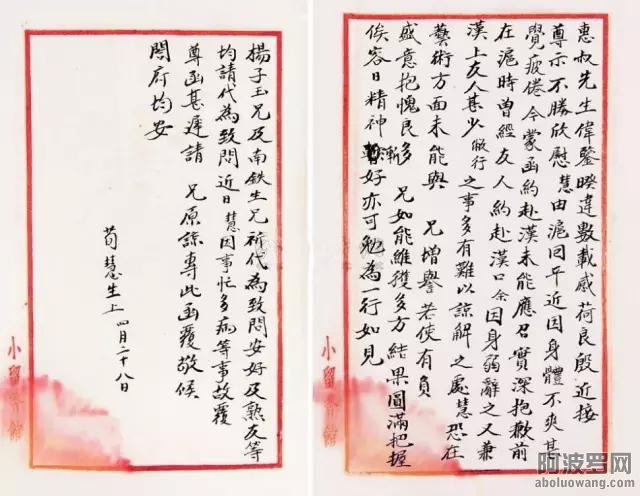 惠叔先生偉鑒暌違數載感荷良殷近接
尊示不勝欣慰慧由滬回平近因身體不爽甚
覺疲倦今蒙函約赴漢未能應召實深抱歉前
在滬時曾經友人約赴漢口余因身弱辭之又兼
漢上友人甚少做行之事多有難以諒解之處慧恐在
藝術方面未能與 兄增譽若使有負
盛意抱愧良多 兄如能維獲多方結果圓滿把握
俟容日精神漸好亦可勉為一行如見
楊子玉兄及南鉄生兄祈代為致問安好及熟友等
均請代為致問近日慧因事忙多病等事故覆
尊函甚遲請 兄原諒專此函覆敬候
閤府均安
荀慧生上 四月二十八日
小留香館
小留香館
阿波罗网
aboluowang.com